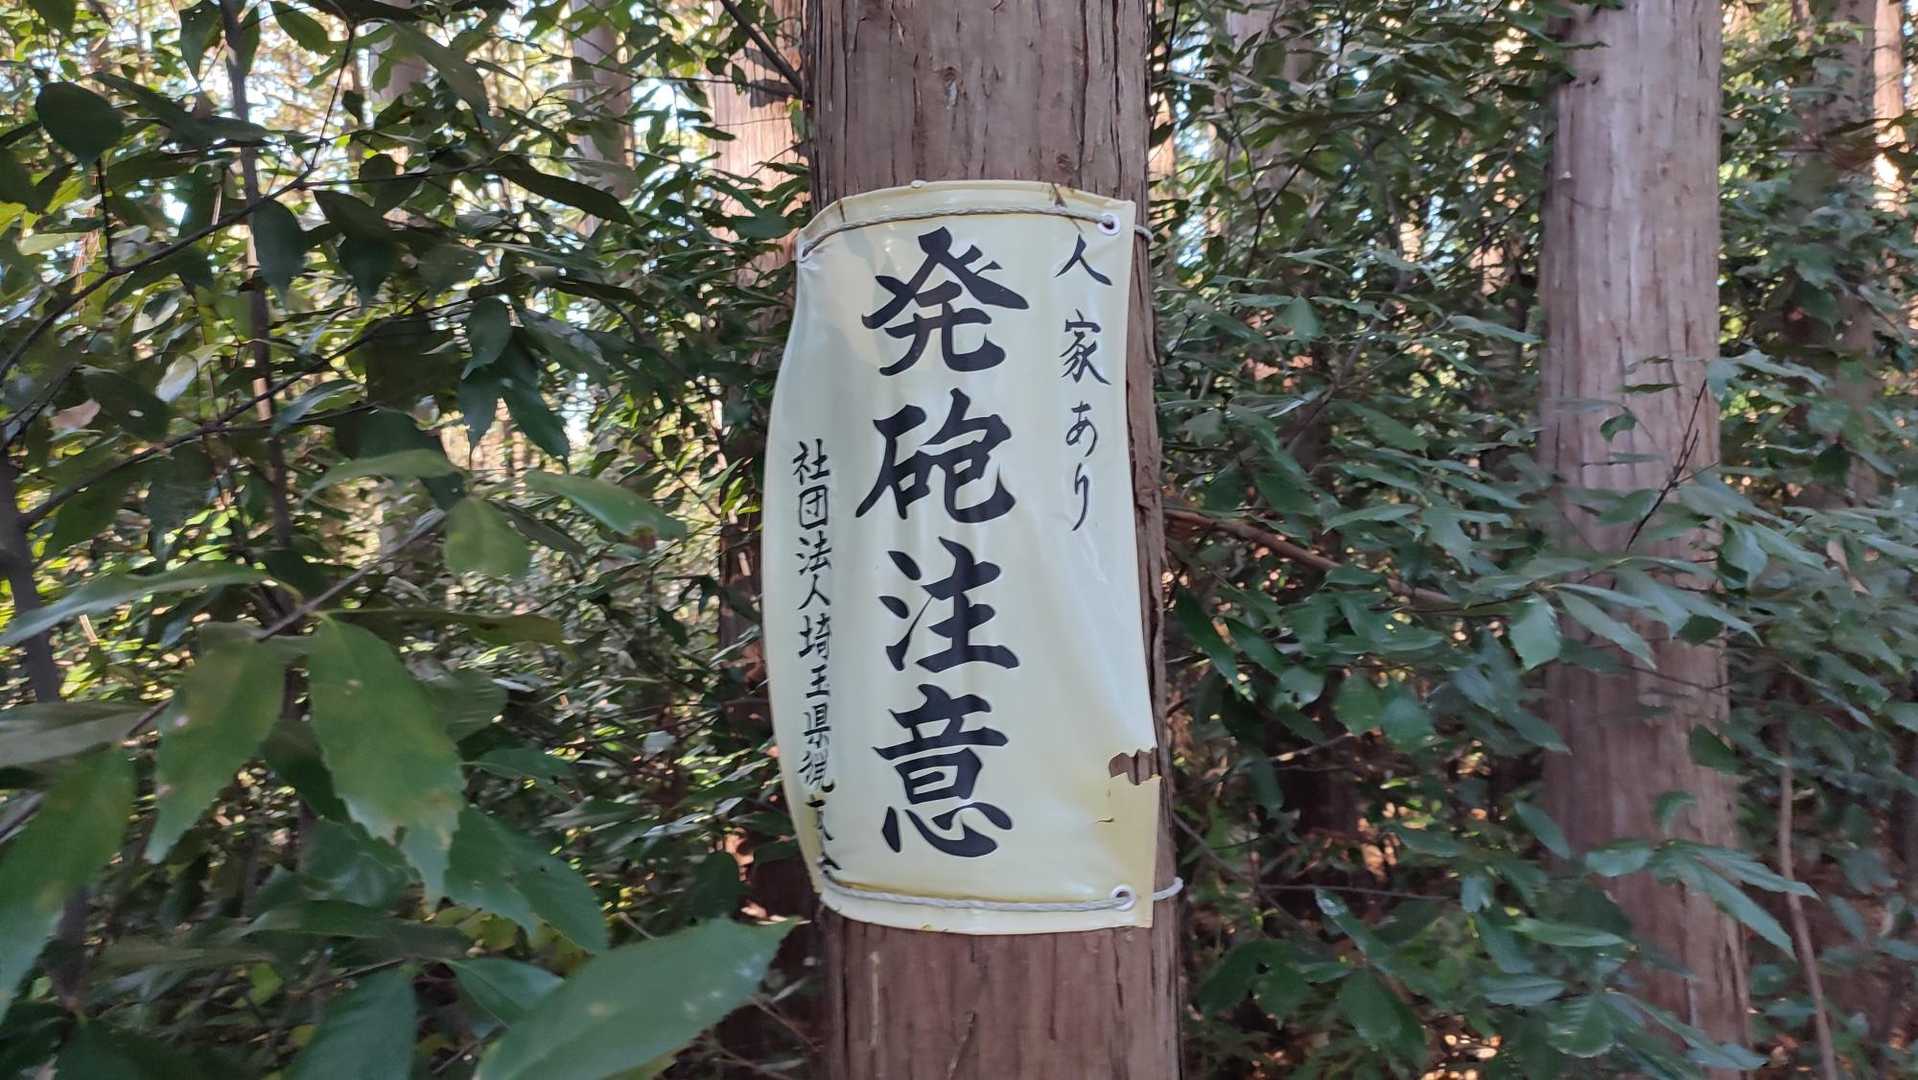 人家あり
発砲注意
社団法人埼玉県猟友会